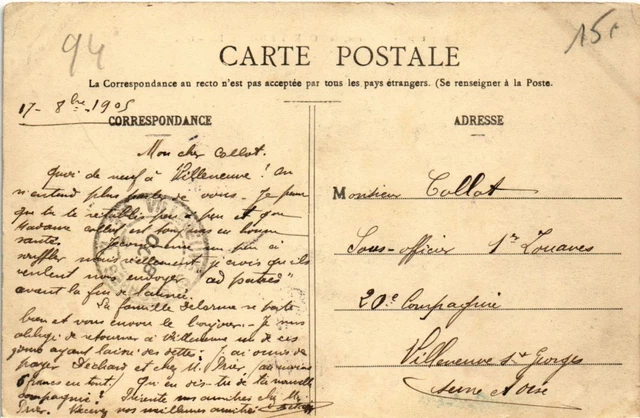 94
15c
CARTE POSTALE
La Correspondance au recto n'est pas acceptée par tous les pays étrangers. (Se renseigner à la Poste.
17 - 8bre 1905
CORRESPONDANCE
Mon cher Collot.
Quoi de neuf à Villeneuve ! On
n'entend plus parler de vous. Je pense
que tu te rétablis peu à peu et que
Madame Collot est toujours en bonne
santé.
souffler nous vieillement, je crois que ils
veulent nous envoyer "ad patres"
avant la fin de l'année.
La famille Delarme se porte
bien et vous envoie le bonjour. Je suis
obligé de retourner à Villeneuve un de ces
jours ayant laissé des dettes : j'ai omis de
payer Dechard et chez M. au moins
6 francs en tout. Qu'en dis-tu de ta nouvelle
compagnie ? amitiés chez M.
Recevez nos meilleures amitiés
ADRESSE
Monsieur Collot
Sous-officier 1er Zouaves
20e Compagnie
Villeneuve St Georges
Seine et Oise